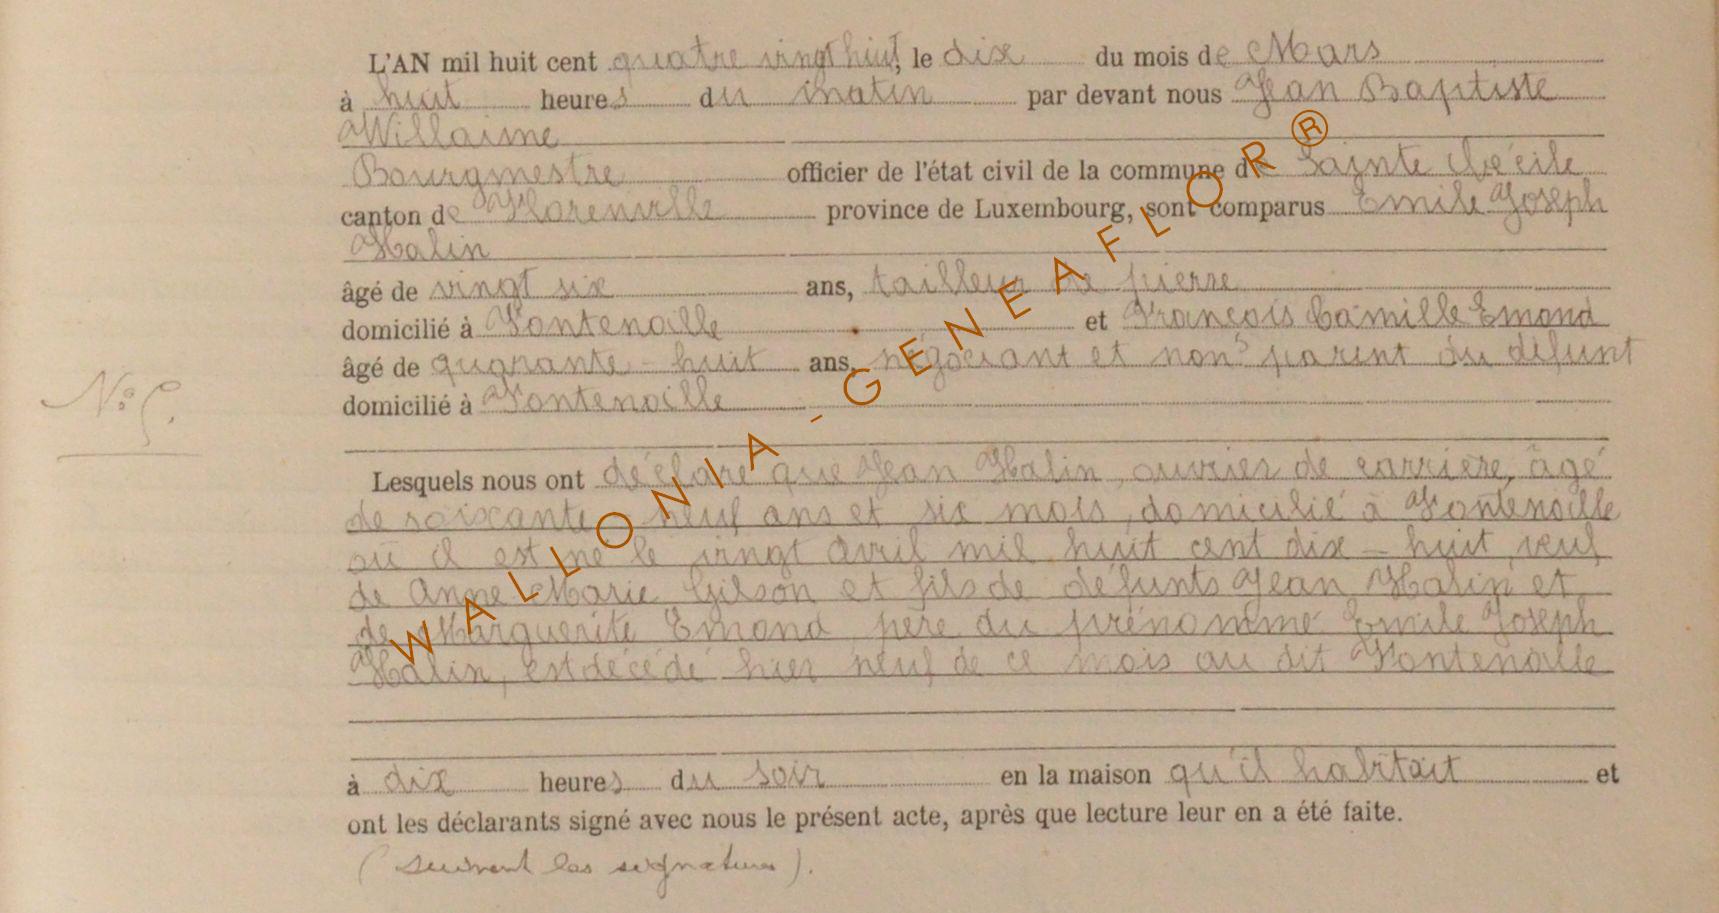 L'AN mil huit cent quatre vingt huit, le dix du mois de Mars
à huit heures du matin par devant nous Jean Baptiste
Willaime
Bourgmestre officier de l'état civil de la commune de Sainte Cécile
canton de Florenville province de Luxembourg, sont comparus Emile Joseph
Halin
âgé de vingt six ans, tailleur de pierre
domicilié à Fontenoille et François Camille Emond
âgé de quarante - huit ans, négociant et non parent du défunt
N° 5.
domicilié à Fontenoille
Lesquels nous ont déclaré que Jean Halin, ouvrier de carrière, âgé
de soixante neuf ans et six mois, domicilié à Fontenoille
où il est né le vingt Avril mil huit cent dix - huit, veuf
de Anne Marie Gilson et fils de défunts Jean Halin et
de Marguerite Emond, père du prénommé Emile Joseph
Halin, est décédé hier neuf de ce mois au dit Fontenoille
à dix heures du soir en la maison qu'il habitait et
ont les déclarants signé avec nous le présent acte, après que lecture leur en a été faite.
(suivent les signatures).
WALLONIA-GENEAFLOR®